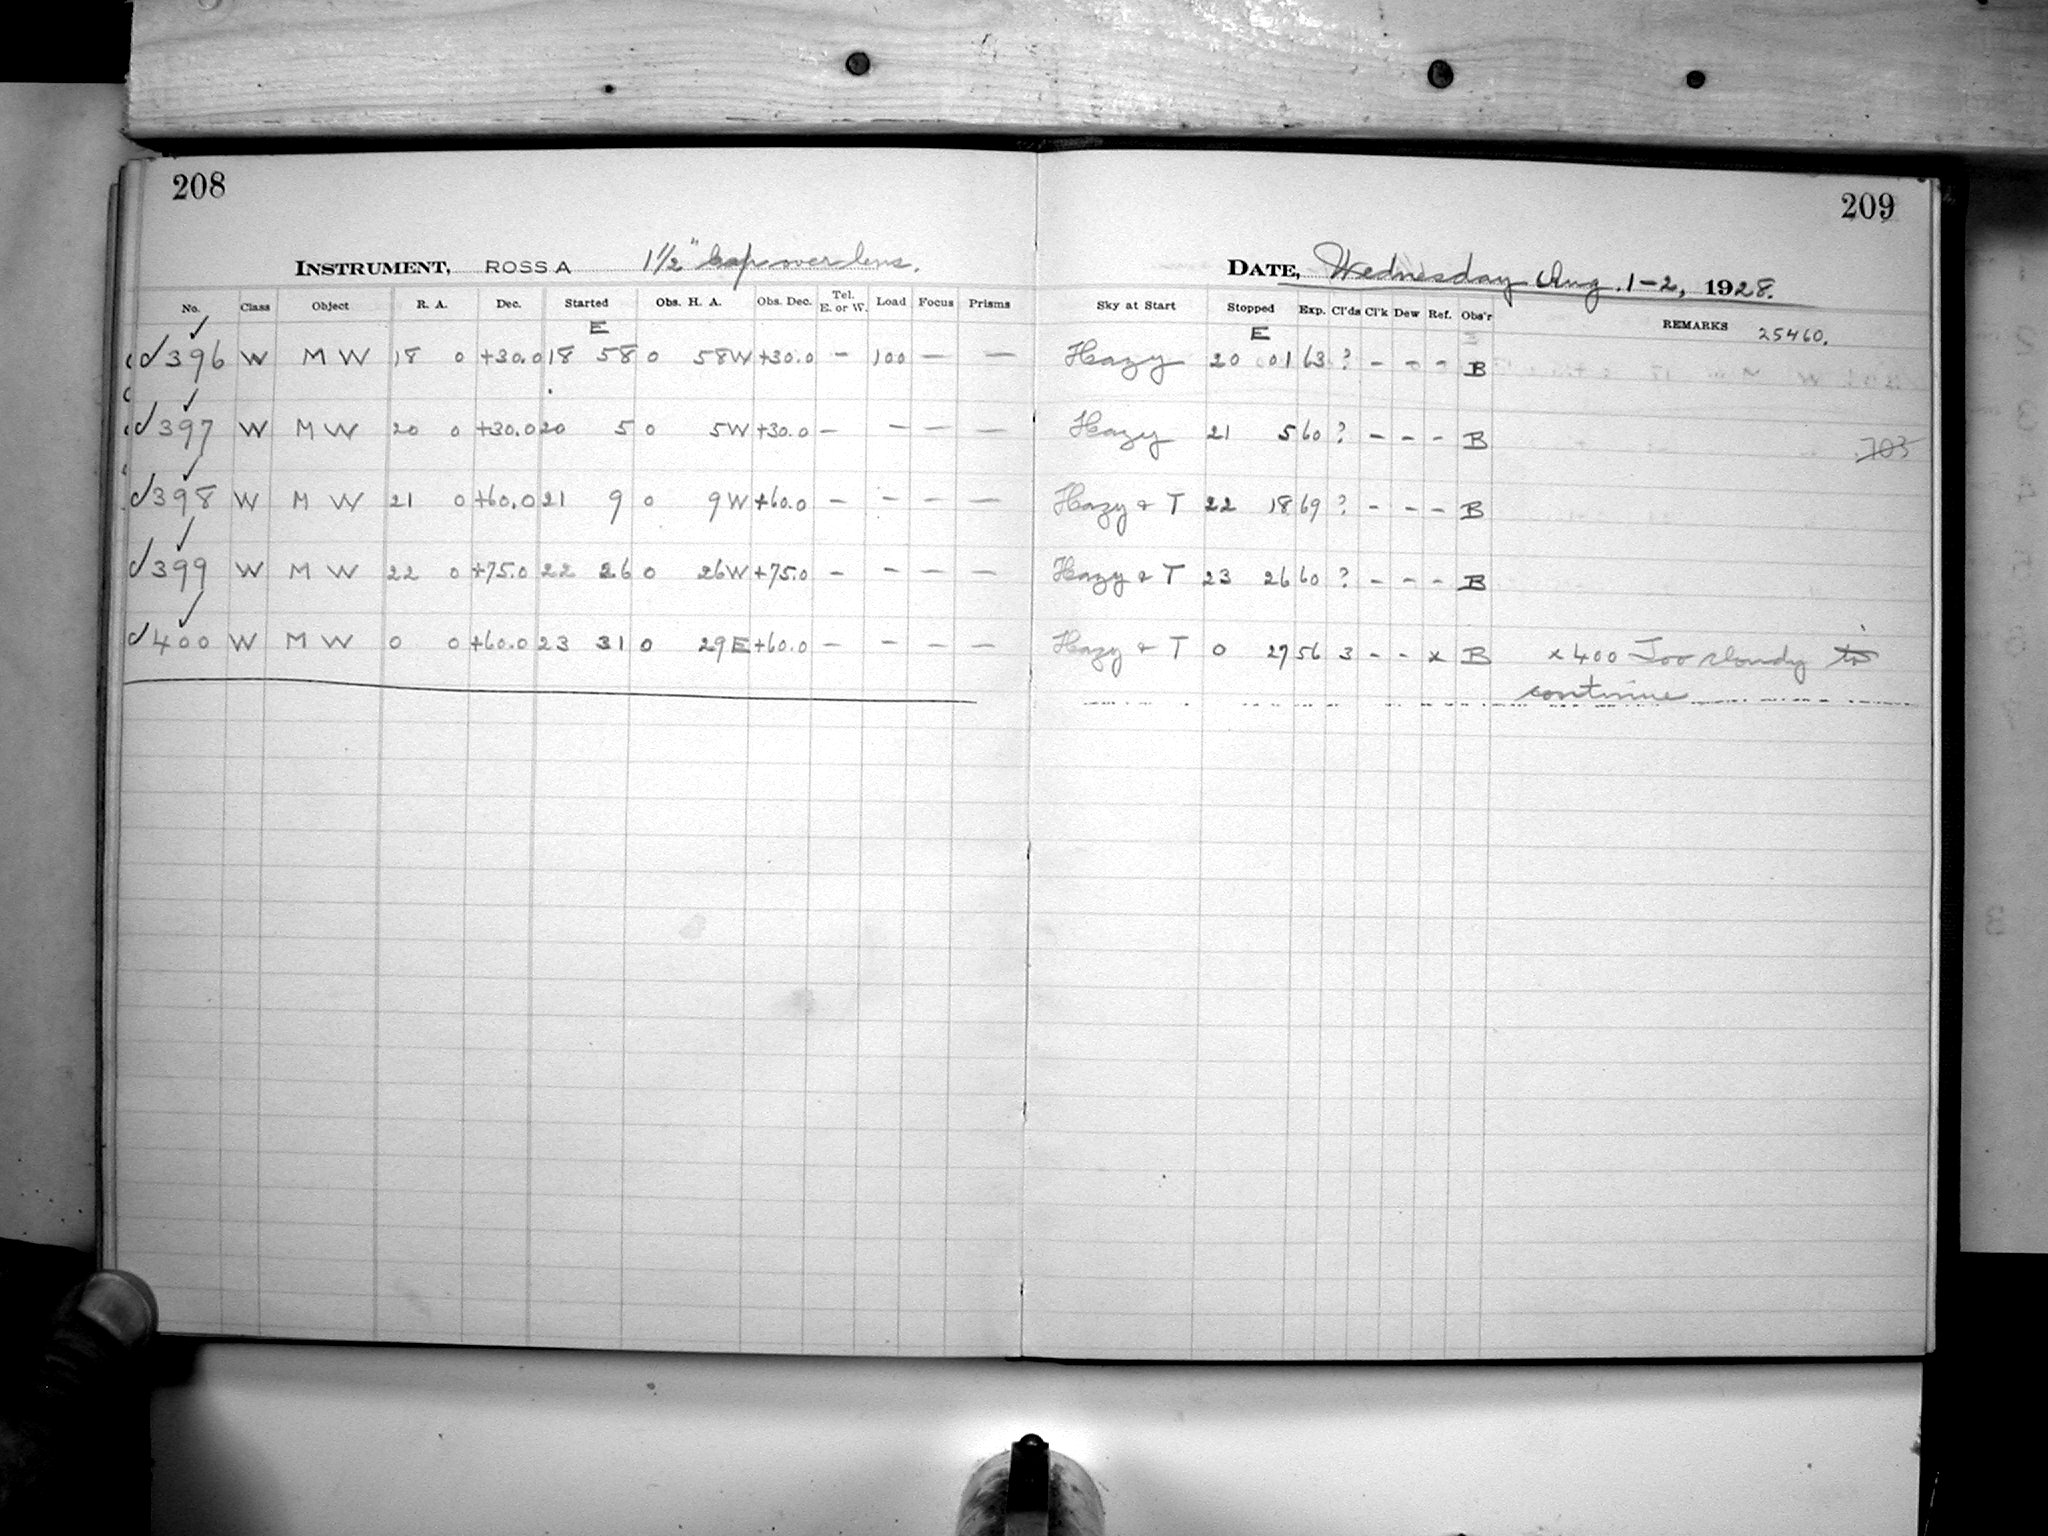 208
INSTRUMENT, ROSS A 1 1/2" cap over lens.
No. Class Object R. A. Dec. Started Obs. H. A. Obs. Dec. Tel. E. or W. Load Focus Prisms
E
✓396 W M W 18 0 +30.0 18 58 0 58W +30.0 - 100 — —
✓397 W M W 20 0 +30.0 20 5 0 5W +30.0 — — — —
✓398 W M W 21 0 +60.0 21 9 0 9W +60.0 — — — —
✓399 W M W 22 0 +75.0 22 26 0 26W +75.0 — — — —
✓400 W M W 0 0 +60.0 23 31 0 29E +60.0 — — — —
209
DATE, Wednesday Aug. 1-2, 1928.
Sky at Start Stopped Exp. Cl'ds Cl'k Dew Ref. Obs'r REMARKS 25460.
E
Hazy 20 01 63 ? - - - B
Hazy 21 5 60 ? - - - B 703
Hazy & T 22 18 69 ? - - - B
Hazy & T 23 26 60 ? - - - B
Hazy & T 0 27 56 3 - - x B x 400 Too cloudy to
continue